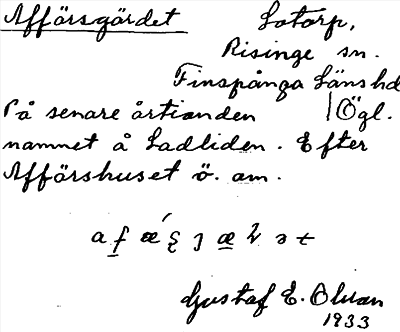 Affärsgärdet Lotorp,
Risinge sn.
Finspånga Länshd
På senare årtianden Ögl.
namnet å Ladliden. Efter
Affärshuset ö. am.
Gustaf E.
1933